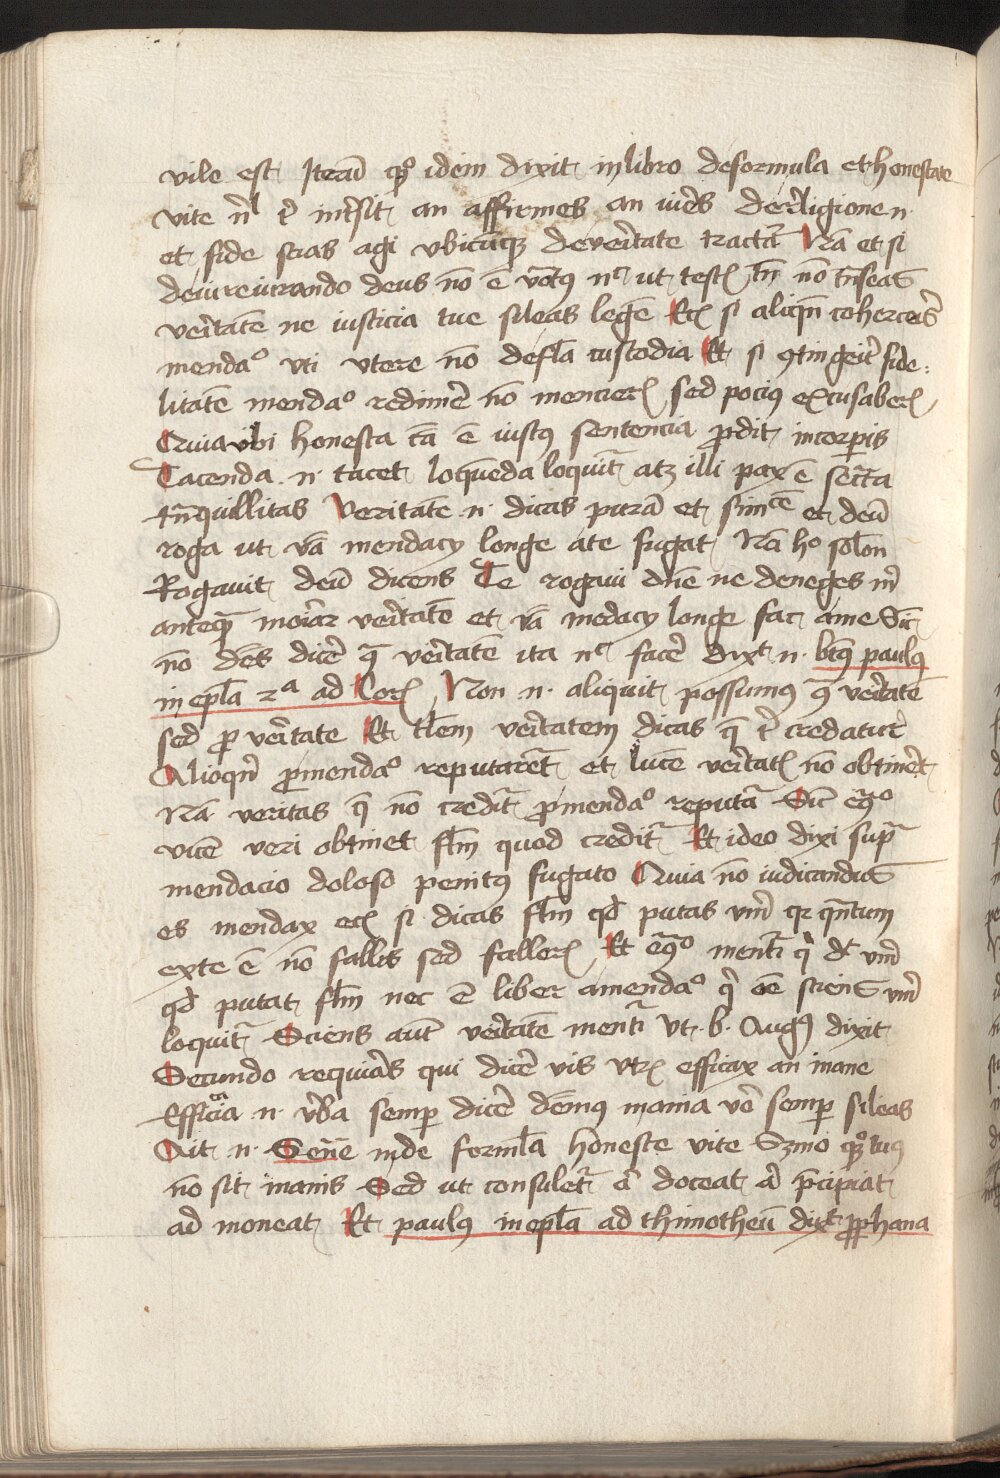 vile est Iterū qͦ idem dixit in libro de formula et honestate
vite nl̄ tͥ int̄sit an affirmes an iures de r̄ligione n̄
et fide scias agi vbicūqꝫ de vēitate tractat̄ Nā et si
deiureiurando deus nō ē n̄ ut test̄ tn̄ nō tn̄seas
vēitatē ne iusticia tue sileas legē Etꝫ si aliqn̄ coherceris
mendaͦ vti vtere nō de fl̄a custodia Et si ꝯtingēit fide
litatē mendaͦ redimē nō mencier̄ sed pociꝰ excusaber̄
Quia vbi honesta cā ē iustꝰ sentencia ꝓdit in corꝑis
Tacenda n̄ tacet loquēda loquit̄ atꝫ illi pax ē sec̄ta
tn̄quillitas Veritatē n̄ dicas purā et simᶜᵉ et deū
roga ut vā mendacy longe a te fugat Nā hͦ sol̄on
Rogauit deū dicens Te rogaui dn̄e ne deneges m̄
anteqꝫ moriar vēitatē et vā mēdacy longe fac a me Sic
nō dēs dicē qͣ vēitatē ita nᶜ facē dixᵗ n̄ btꝰ paulꝰ
in epl̄a 2ᵃ ad Cor̄ Non n̄ aliquit possumꝰ ꝯͣ vēitatē
sed ꝓ vēitate Et tl̄em vēitatem dicas qͣ tͥ credatur
Alioqn̄ ꝓ mendaͦ reputaret̄ et lucē vēitat̄ nō obtinēt
Nā veritas qͣ nō credit̄ ꝓ mendaͦ reputat̄ Sic eͣrgͦ
vicē veri obtinet fl̄m quod credit̄ Et ideo dixi supͣ
mendacio doloso penitꝰ fugato Quia nō iudicandus
es mendax etꝫ si dicas fl̄m qd̄ putas vm̄ qꝛ qn̄tum
ex te ē nō fallis sed faller̄ Et eͣrgͦ mentit̄ qͥ dt̄ vm̄
qd̄ putat fl̄m nec ē liber a mendaͦ qͥ ore sciens vm̄
loquit̄ Sciens aut̄ vēitatē mentit̄ Vt b̄ Augꝰ dixit
Secundo requiras qui dicē vis vtꝝ efficax an inane
Efficatia n̄ vb̄a semꝑ dicē dēmꝰ inania vō semꝑ sileas
Ait n̄ Sene in de forml̄a honeste vite Sꝫmo qͦꝫ tuꝰ
nō sit inanis Sed ut consulet̄ aͭ doceat aͭ p̄cipiat
ad moneat Et paulꝰ in epl̄a ad thimotheū dixᵗ ꝓphana